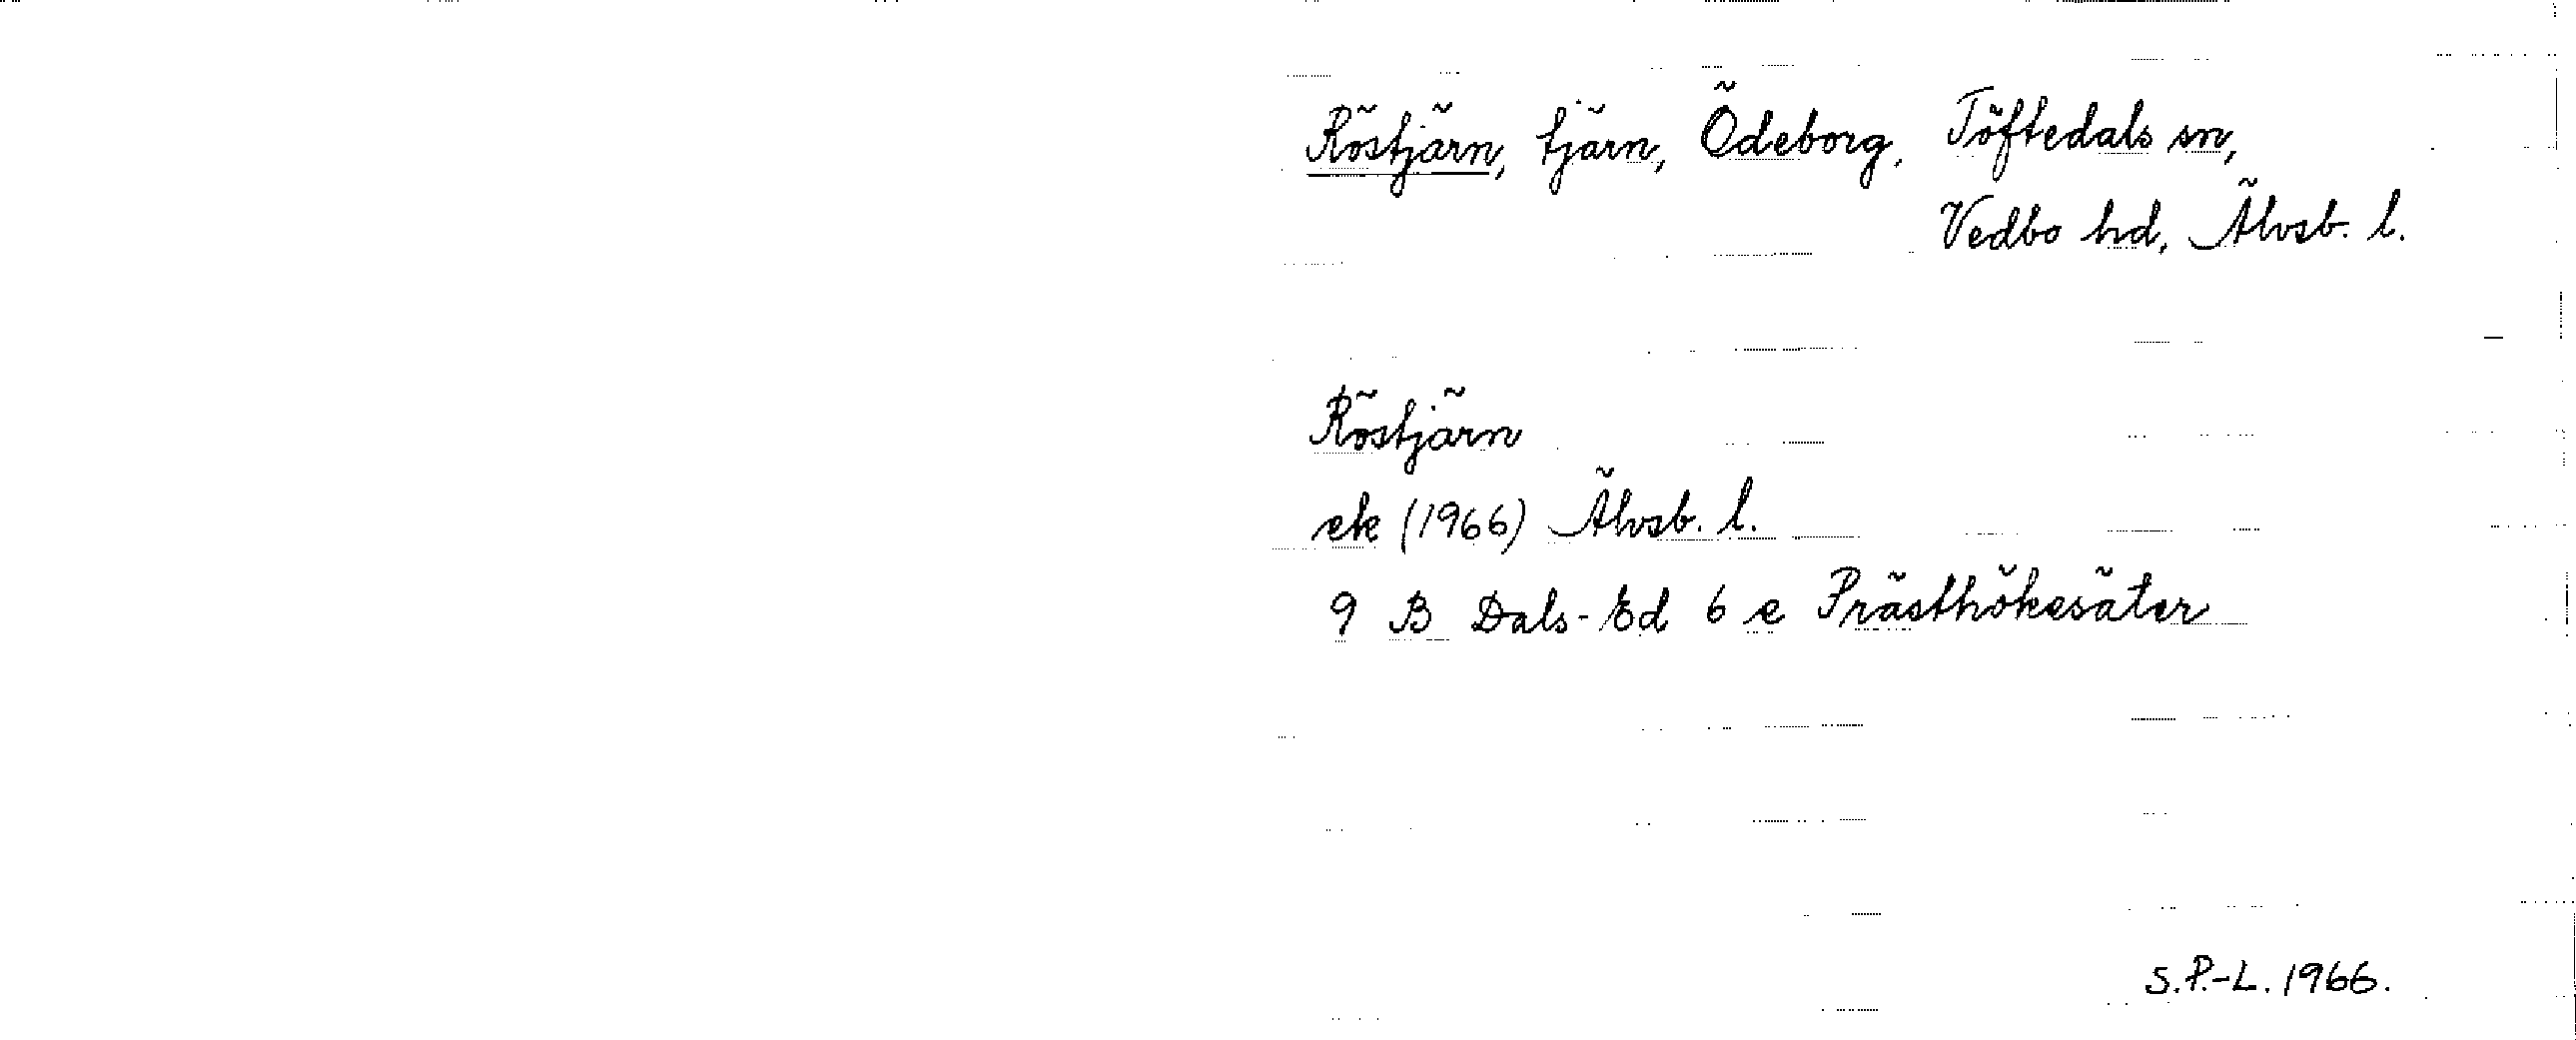 Röstjärn, tjärn, Ödeborg, Töftedals sn,
Vedbo hd, Älvsb. l.
Röstjärn
ek (1966) Älvsb. l.
9 B Dals-Ed 6 e Prästhökesäter
S.P.-L. 1966.